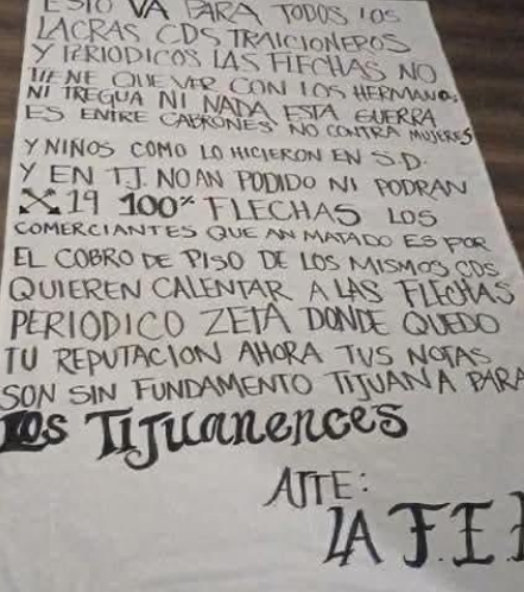 ESTO VA PARA TODOS LOS
LACRAS CDS TRAICIONEROS
Y PERIODICOS LAS FLECHAS NO
TIENE QUE VER CON LOS HERMANOS
NI TREGUA NI NADA ESTA GUERRA
ES ENTRE CABRONES NO CONTRA MUJERES
Y NIÑOS COMO LO HICIERON EN S.D.
Y EN TJ. NO AN PODIDO NI PODRAN
19 100% FLECHAS LOS
COMERCIANTES QUE AN MATADO ES POR
EL COBRO DE PISO DE LOS MISMOS CDS
QUIEREN CALENTAR A LAS FLECHAS
PERIODICO ZETA DONDE QUEDO
TU REPUTACION AHORA TUS NOTAS
SON SIN FUNDAMENTO TIJUANA PARA
LOS TIJUANENCES
ATTE:
LA F.E.